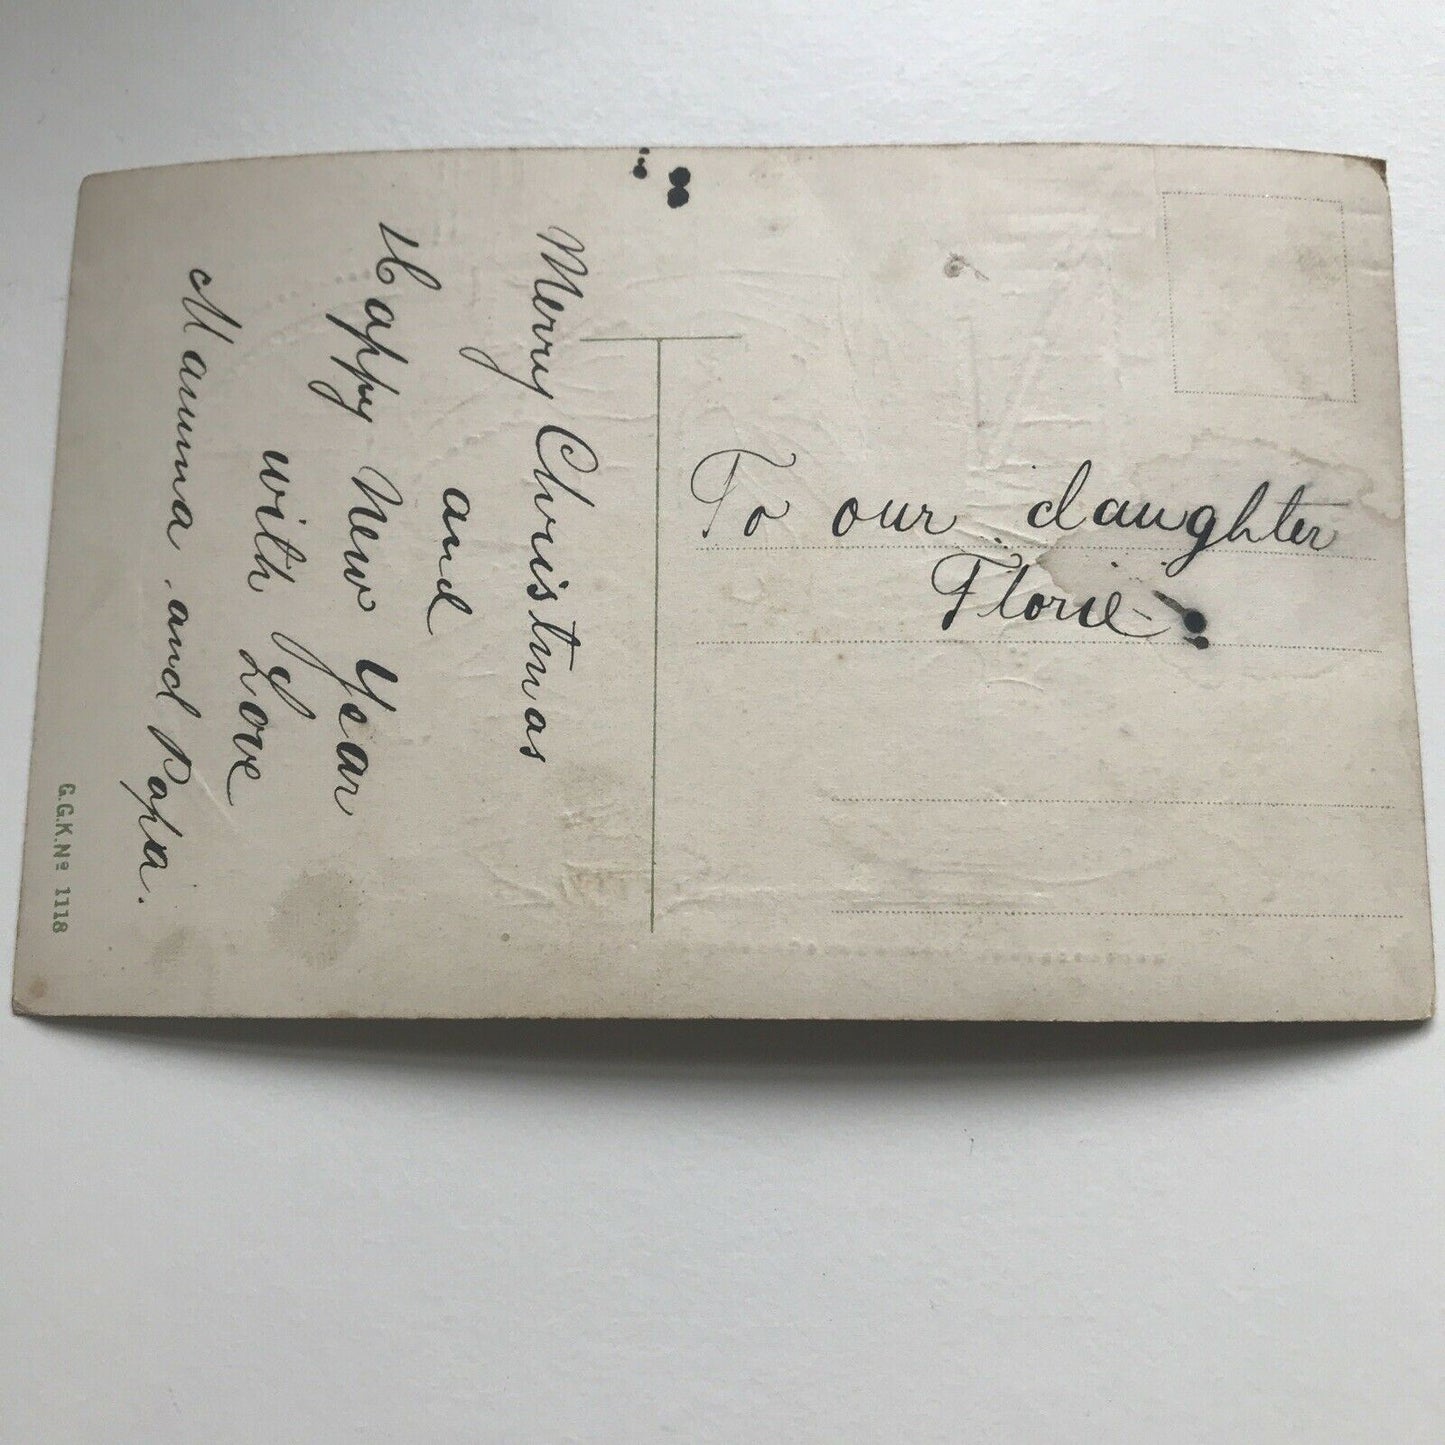 Merry Christmas
and
Happy New Year
with
Love
Mamma and Papa.
To our daughter
Florie
G.G.K.Nº 1118